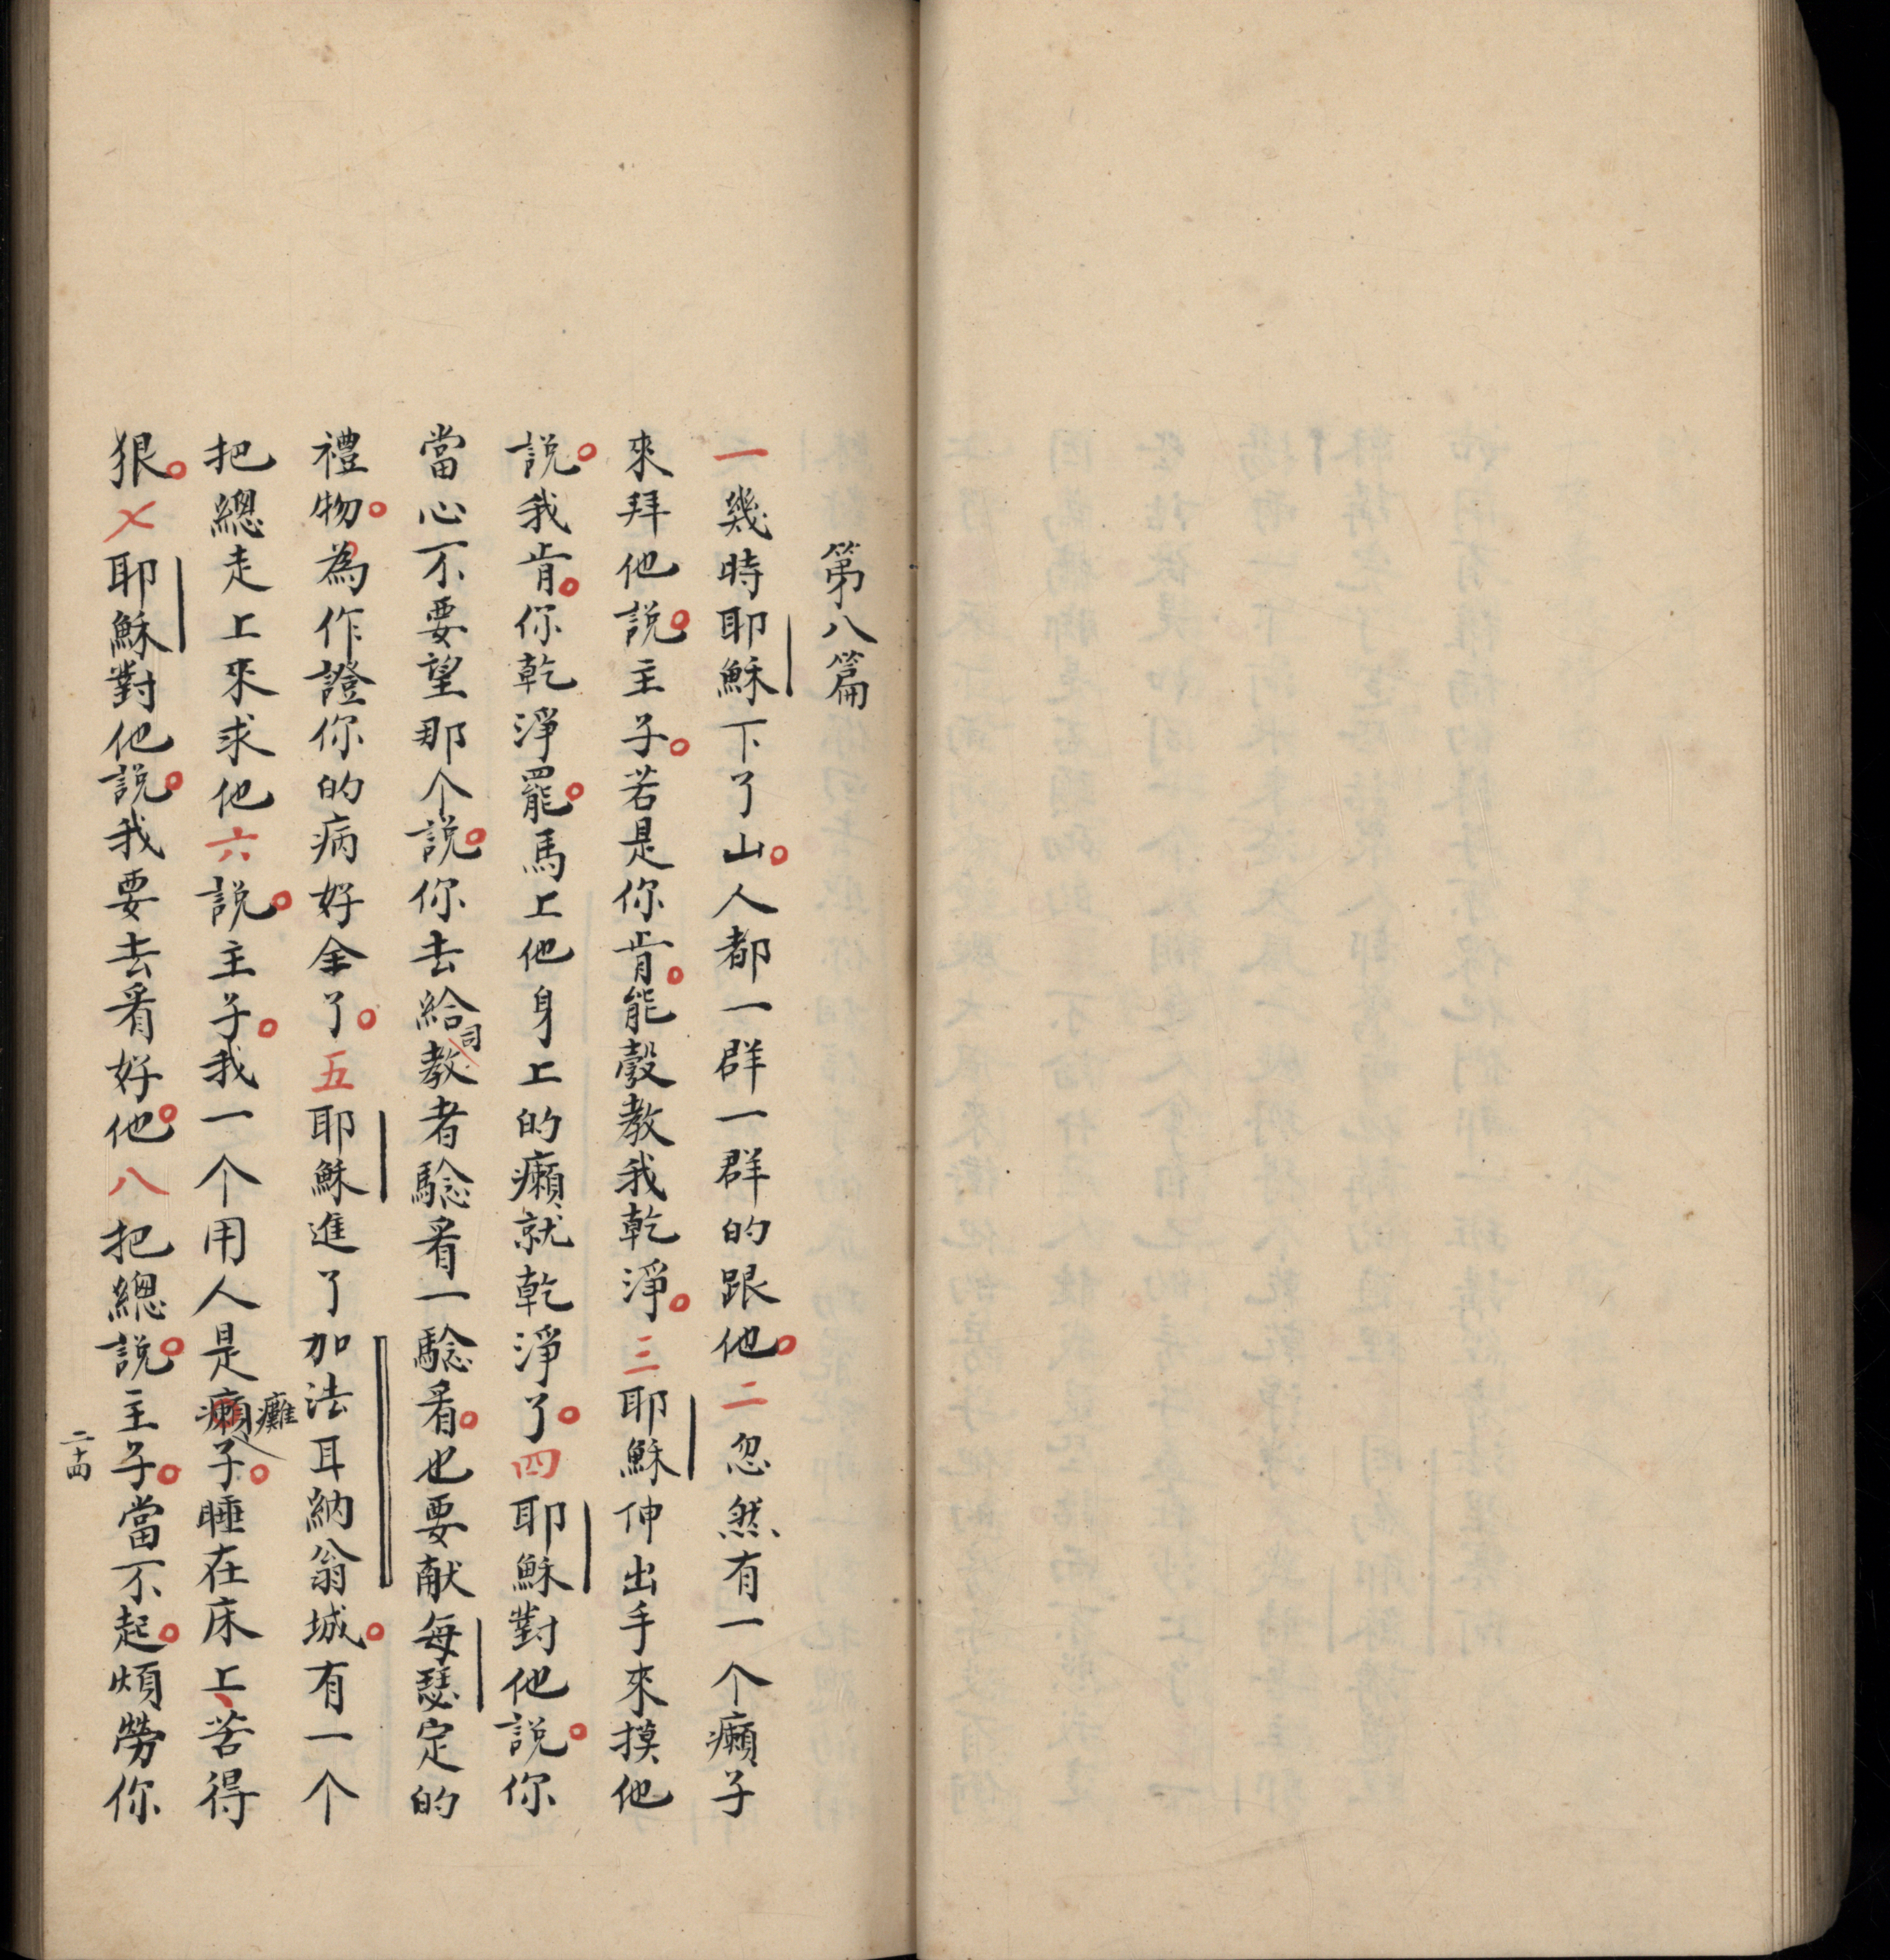 第八篇
一幾時耶穌下了山。人都一群一群的跟他。二忽然有一个癩子
來拜他說。主子。若是你肯。能彀教我乾淨。三耶穌伸出手來摸他
說。我肯。你乾淨罷。馬上他身上的癩就乾淨了。四耶穌對他說。你
當心不要望那个說。你去給教司者騐看一騐看。也要献每瑟定的
禮物。為作證你的病好全了。五耶穌進了加法耳納翁城。有一个
把總走上來求他六說。主子。我一个用人是癩癱子。睡在床上、苦得
狠。〤耶穌對他說。我要去看好他。八把總說。主子。當不起。煩勞你
二十四